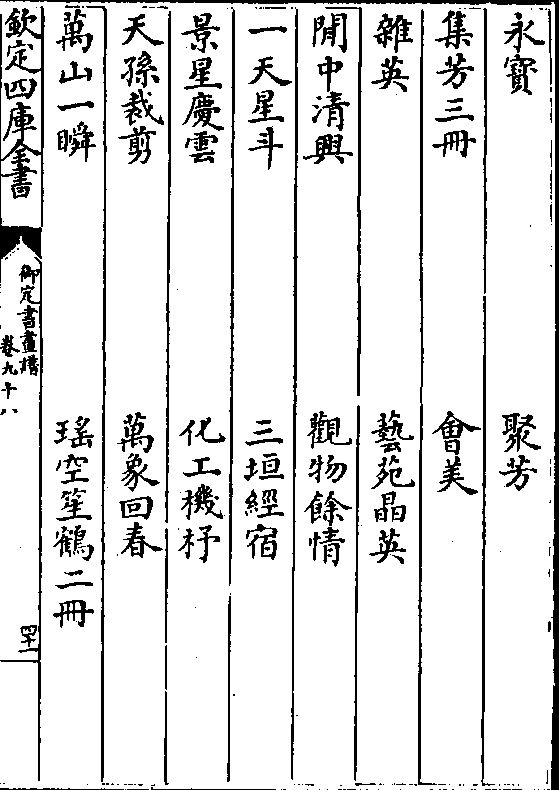 永寶 聚芳
集芳三冊 會美
雜英 藝苑晶英
閒中清興 觀物餘情
一天星斗 三垣經宿
景星慶雲 化工機杼
天孫裁剪 萬象回春
萬山一瞬 瑤空笙鶴二冊
欽定四庫全書
御定書畫譜
卷九十八
四十一